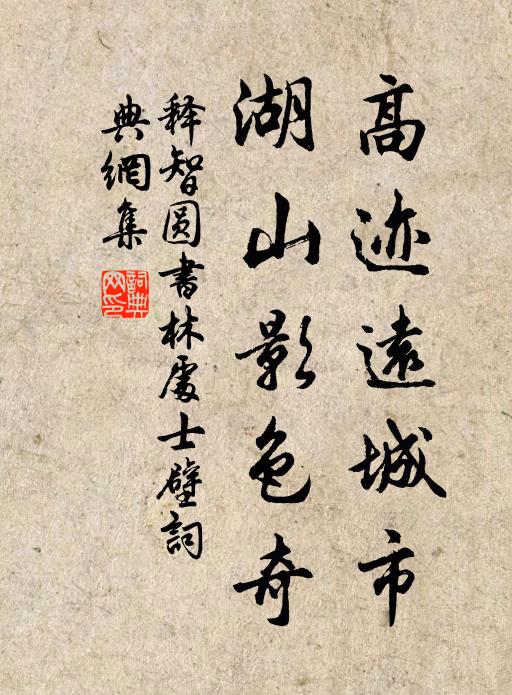 高迹遠城市
湖山影色奇
释智圆書林處士壁詞
典網集
詞典網印